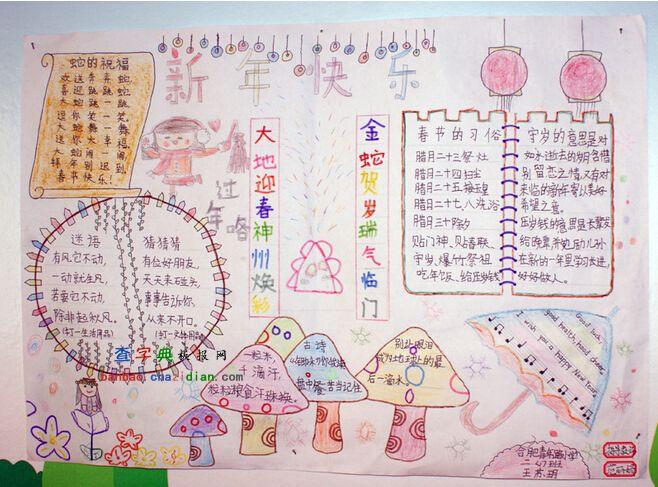 新年快乐
蛇的祝福
欢送奔奔蛇
喜迎跳跳
大蛇跳一跳
逗你笑一笑
大蛇舞一舞
送你大幸福
大蛇闹一闹
春节快乐！
过年咯
大地迎春神州焕彩
金蛇贺岁瑞气临门
春节的习俗
腊月二十三祭灶
腊月二十四扫尘
腊月二十五接玉皇
腊月二十七八洗浴
腊月三十除夕
贴门神、贴春联、
守岁、爆竹祭祖
吃年饭、给压岁钱
守岁的意思是对
如水逝去的岁月含惜
别留恋之情又有对
来临的新年寄以美好
希望之意。
压岁钱的意思是长辈发
给晚辈并勉励儿孙
在新的一年里学习长进，
好好做人。
迷语
有风它不动，
一动就生风，
若要它不动，
除非起秋风。
(打一生活用品)
猜猜猜
有位好朋友，
天天来碰头，
事事告诉你，
从来不开口。
(打一文体用品)
查字典板报网
banbao.chazidian.com
一粒米，
千滴汗，
粒粒粮食汗珠换。
古诗
盘中餐苦当记住
别让眼泪
成为地球上的最
后一滴水。
Good luck,
good health, hood cheer.
I wish you a happy New Year.
合肥青年路小学
二、47班
王苏玥